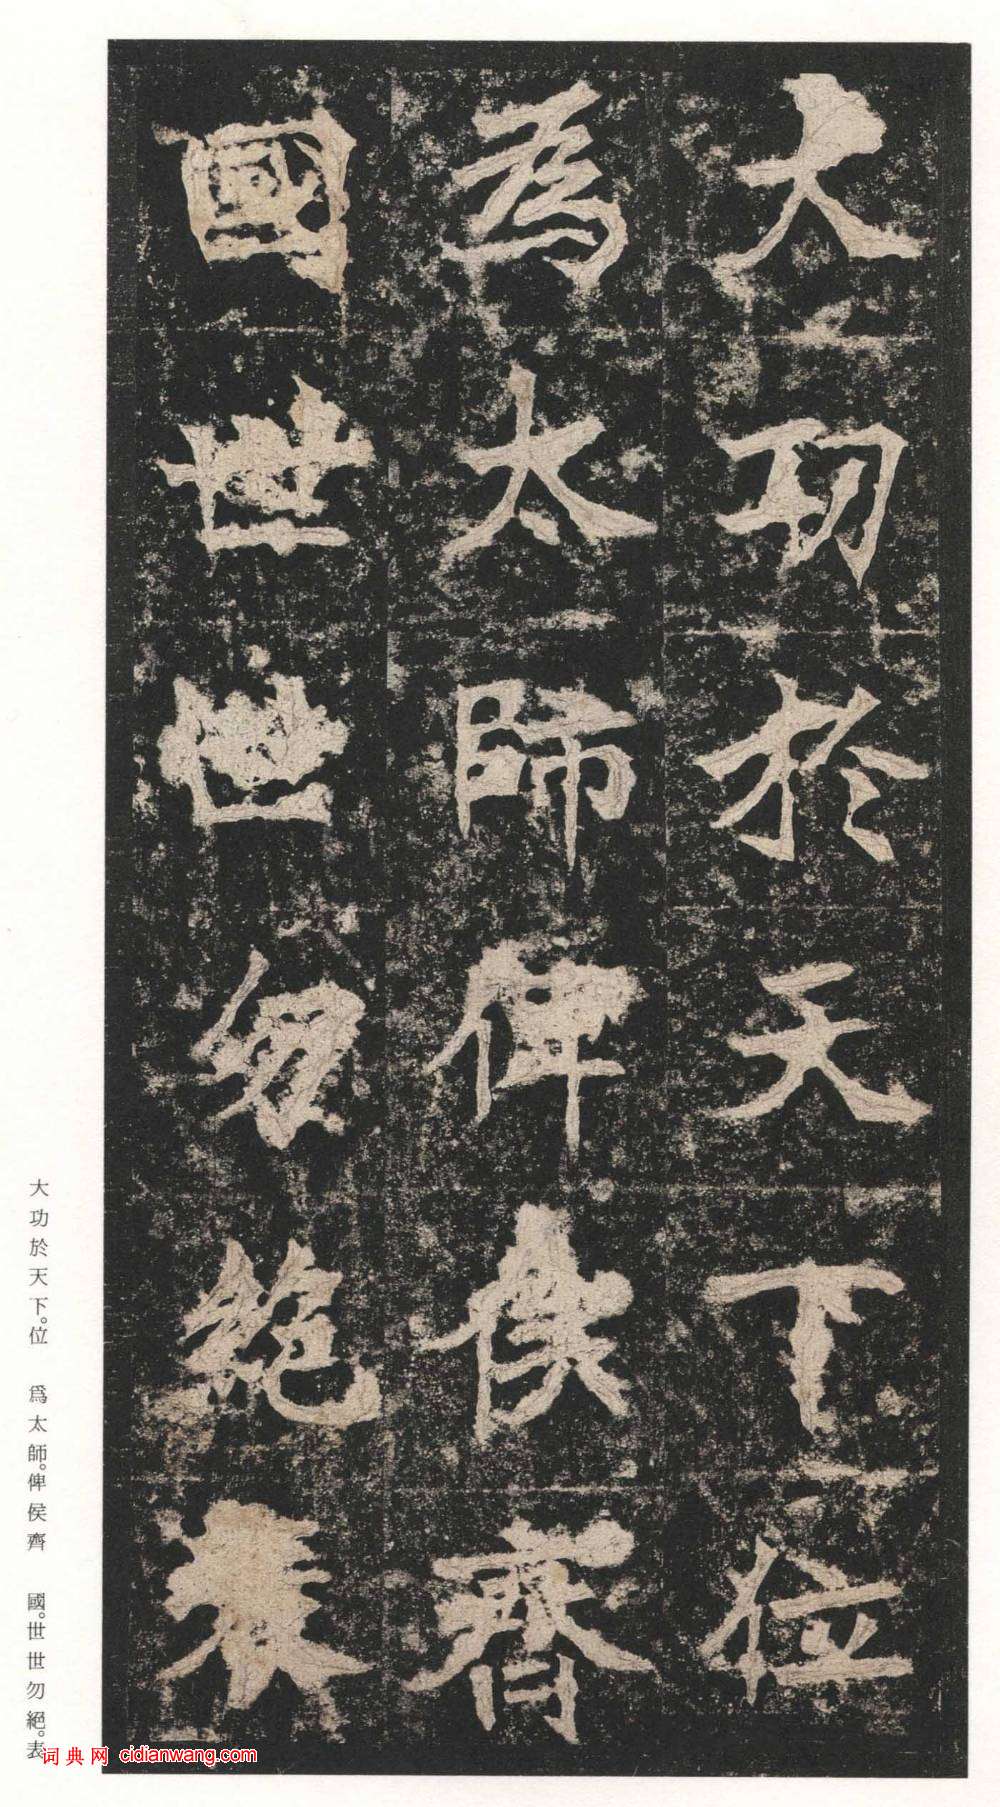 大功於天下位
為太師俾侯齊
國世世勿絕表
大功於天下。位　為太師。俾侯齊　國。世世勿絕。表
词典网 cidianwang.com